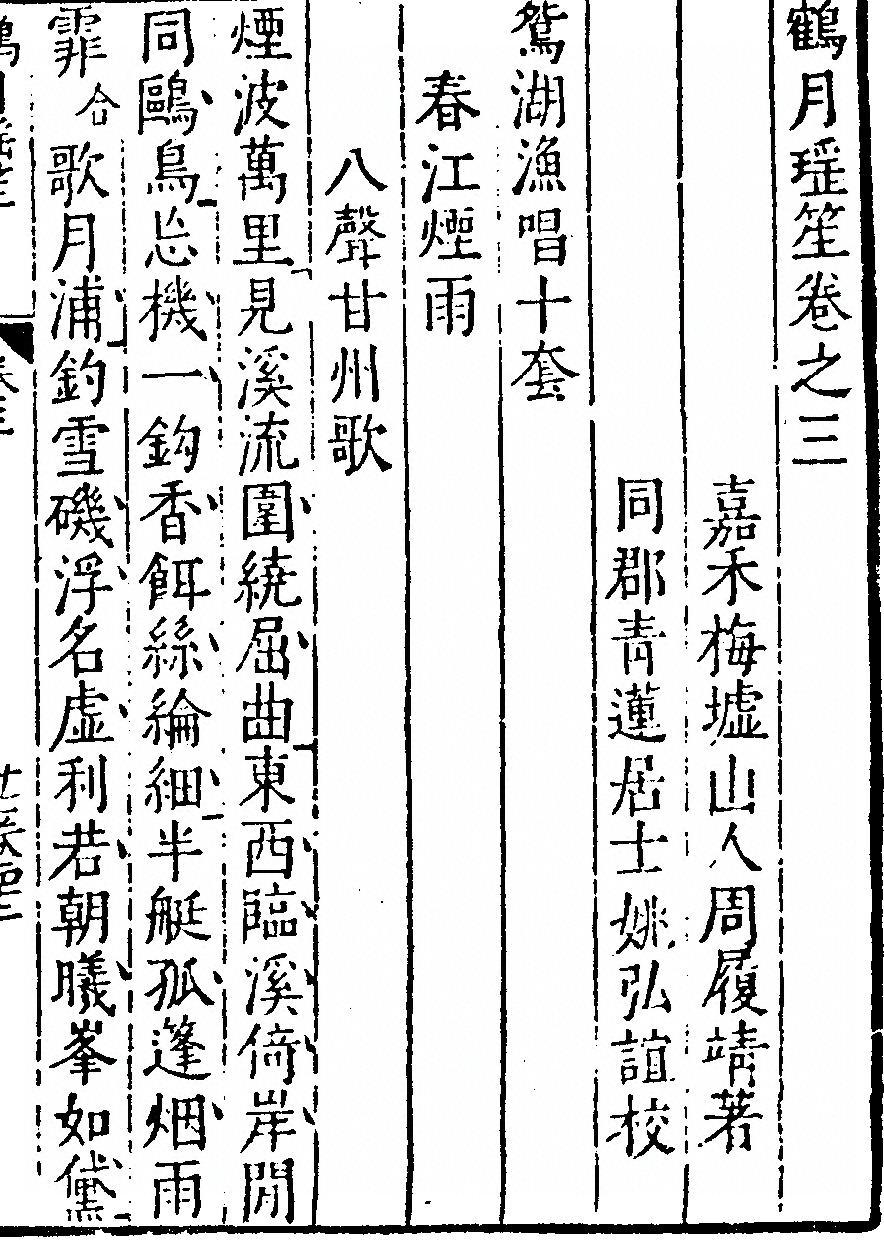 鶴月瑶笙卷之三
嘉禾梅墟山人周履靖著
同郡青蓮居士姚弘誼校
鴛湖漁唱十套
春江煙雨
八聲甘州歌
煙波萬里見溪流圍繞屈曲東西臨溪倚岸閒
同鷗鳥忘機一鈎香餌絲綸細半艇孤篷烟雨
霏合歌月浦釣雪磯浮名虛利若朝曦峯如黛